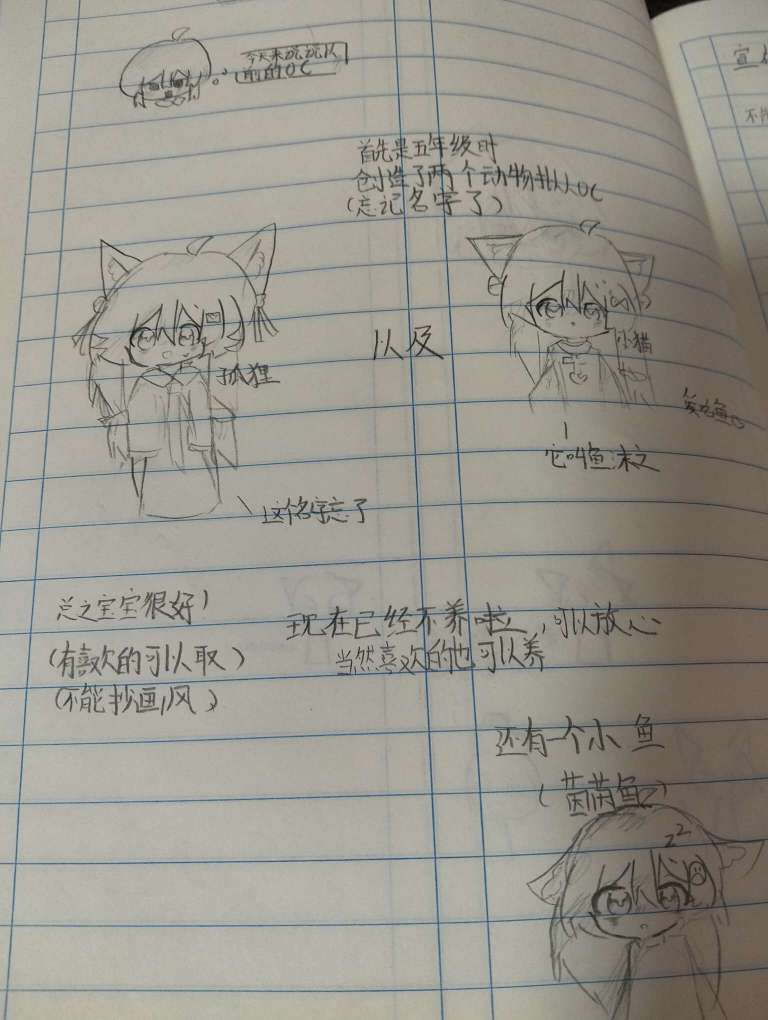 今天来玩玩从
前的OC
首先是五年级时
创造了两个动物拟人OC
(忘记名字了)
狐狸
以及
小猫
它叫鱼沫之
这名字忘了
总之宝宝很好!
(有喜欢的可以取)
(不能抄画风)
现在已经不养啦,可以放心
当然喜欢的也可以养
还有一个小鱼
(茵茵鱼)
zz
宣
不能